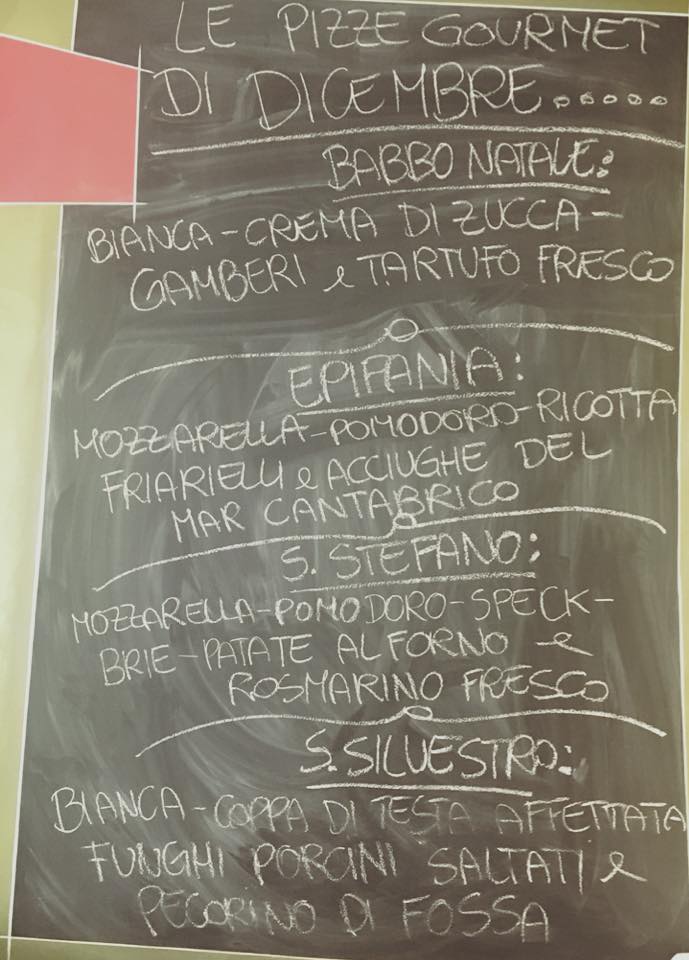 LE PIZZE GOURMET
DI DICEMBRE.....
BABBO NATALE:
BIANCA-CREMA DI ZUCCA-
GAMBERI e TARTUFO FRESCO
EPIFANIA:
MOZZARELLA-POMODORO-RICOTTA
FRIARIELLI e ACCIUGHE DEL
MAR CANTABRICO
S. STEFANO:
MOZZARELLA-POMODORO-SPECK-
BRIE-PATATE AL FORNO e
ROSMARINO FRESCO
S. SILVESTRO:
BIANCA-COPPA DI TESTA AFFETTATA
FUNGHI PORCINI SALTATI e
PECORINO DI FOSSA